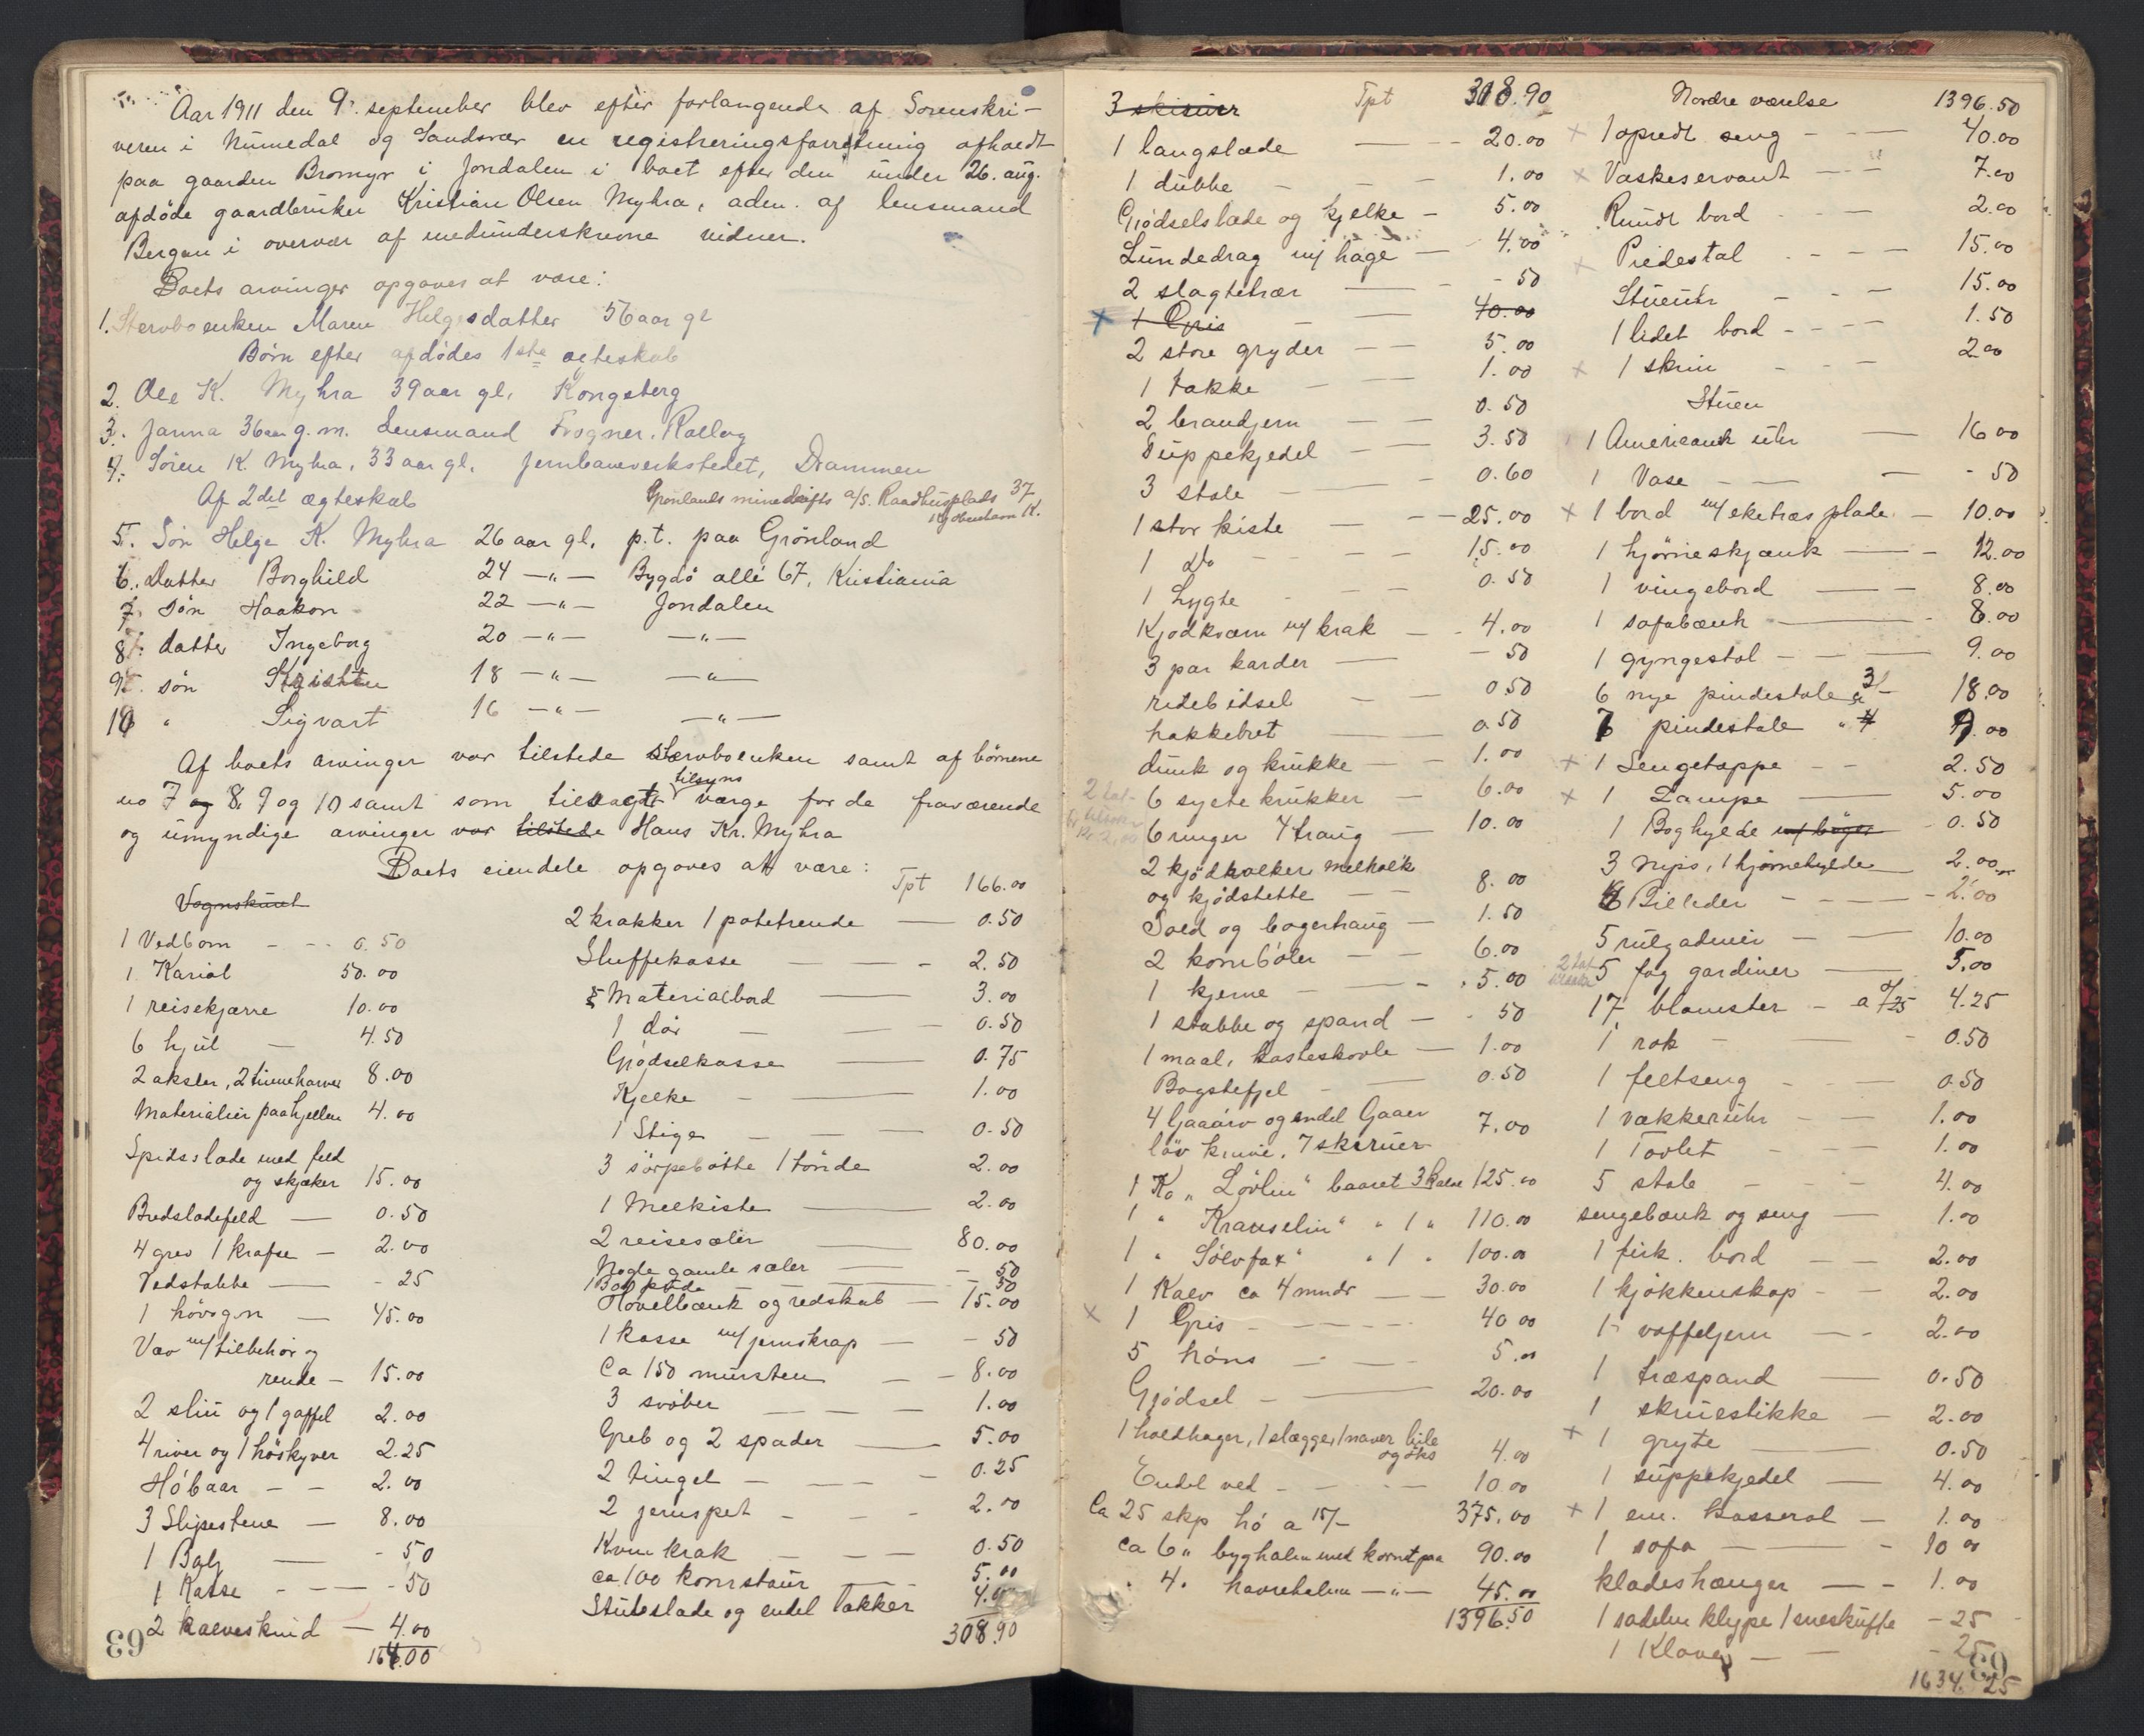 Aar 1911 den 9. september blev efter forlangende af Sorenskri-
veren i Numedal og Sandsvær en registreringsforretning afholdt
paa gaarden Bromyr i Jondalen i boet efter den under 26. aug.
afdöde gaardbruker Kristian Olsen Myhra, adm. af lensmand
Bergan i overvær af medunderskrevne vidner.
Boets arvinger opgaves at være:
1. Stervboenken Maren Helgesdatter 56 aar gl
Børn efter afdödes 1ste ægteskab
2. Ole K. Myhra 39 aar gl. Kongsberg
3. Janna 36 aar g.m. Lensmand Frogner, Rollag
4. Sören K. Myhra, 33 aar gl. Jernbaneverkstedet, Drammen
Af 2det ægteskab
Grønlands minedrifts a/s. Raadhusplads 37
Kjøbenhavn K.
5. Sön Helge K. Myhra 26 aar gl. p.t. paa Grönland
6. Datter Borghild 24 —"— Bygdö allé 67, Kristiania
7. Sön Haakon 22 —"— Jondalen
8. datter Ingeborg 20 —"— —"—
9. sön Kristen 18 —"— —"—
10 " Sigvart 16 —"— —"—
Af boets arvinger var tilstede stervboenken samt af börnene
no 7 og 8, 9 og 10 samt som tilsagt tilsyns værge for de fraværende
og umyndige arvinger var tilstede Hans Kr. Myhra
Boets eiendele opgaves at være:
Vognskuret
1 Vedbom - - - 0.50
1 Kariol 50.00
1 reisekjærre 10.00
6 hjul — 4.50
2 aksler, 2 tinneharver 8.00
Materialier paa hjellen 4.00
Spidsslæde med feld
og skjæker 15.00
Bredslædefeld — 0.50
4 grev 1 krafse — 2.00
Vedstabbe — - 25
1 hövogn — 45.00
Væv m/ tilbehör og
rende — 15.00
2 sliu og 1 gaffel 2.00
4 river og 1 höskyver 2.25
Höbaar - - 2.00
3 Slipestene — 8.00
1 Balj — - 50
1 Kasse - - — - 50
2 kalveskind — 4.00
166.00
63
Tpt 166.00
2 krakker 1 potetrende — 0.50
Sluffekasse — — - 2.50
Materialbord — 3.00
1 dör — — - 0.50
Gjödselkasse — 0.75
Kjelke - — 1.00
1 Stige — — — 0.50
3 sörpebötte 1 tönde 2.00
1 Melkiste — 2.00
2 reiseseler — 80.00
Nogle gamle sæler — - 50
1 Bogpude — — — 50
Hövelbænk og redskab — 15.00
1 kasse m/ jernskrap — - 50
Ca 150 mursten — - 8.00
3 svöber — — — 1.00
Greb og 2 spader — 5.00
2 tingel — — — 0.25
2 jernspet - - - 2.00
Kvernkrak — — — 0.50
ca 100 kornstaur — 5.00
Stuteslæde og endel Takker 4.00
308.90
3 skiruer Tpt 308.90
1 langslæde — - - 20.00
1 dubbe - - - 1.00
Gjödselslæde og kjelke - 5.00
Lundedrag m/ hage — 4.00
2 slagtetrær — - - 50
x 1 Gris — — 40.00
2 store gryder — — 5.00
1 takke — — 1.00
2 brandjern — — 0.50
Suppekjedel — — 3.50
3 stole — — 0.60
1 stor kiste — - - 25.00
1 Do - - - — 15.00
1 Lygte - - - 0.50
Kjödkværn m/ krak — - 4.00
3 par karder — - 50
ridebidsel — — 0.50
hakkebret — — 0.50
dunk og krukke — — 1.00
6 syltekrukker — 6.00
6 ringer 4 traug — 10.00
2 kjödholker melholk
og kjödstette — — 8.00
Sold og bagertraug — 1.50
2 kornböler — — 6.00
1 kjerne - — - . 5.00
1 stabbe og spand — - 50
1 maal, kasteskovle — 1.00
Bagstefjel - — 0.50
4 ljaaarv og endel ljaaer
löv krive, 7 skiruer 7.00
1 Ko „Lövlin" baaret 3 kalve 125.00
1 " Kranselin" " 1 " 110.00
1 " Sölvfax" " 1 " 100.00
1 Kalv ca 4 mndr — — 30.00
x 1 Gris - — - - - 40.00
5 höns — - — - 5.00
Gjödsel - — 20.00
1 haldhager, 1 slægge, 1 naver bile
og öks 4.00
Endel ved - — - — 10.00
Ca 25 skp hö a 15/- 375.00
ca 6 „ byghalm med kornet paa 90.00
" 4 " havrehalm —"— 45.00
1396.50
Nordre værelse 1396.50
x 1 opredt seng - - — 40.00
x Vaskeservant — - - 7.00
Rundt bord - - — 2.00
x Piedestal - - — 15.00
Stueuhr - - — 15.00
1 lidet bord - - — - 1.50
x 1 skrin - - — 2.00
Stuen
1 Americansk uhr — 16.00
1 Vase - — — - 50
x 1 bord m/ eketræs plade — 10.00
1 hjörneskjænk — - 12.00
1 vingebord — - 8.00
1 sofabænk — - 8.00
1 gyngestol - - — 9.00
6 nye pindestole a 3/- 18.00
pindestole
x 1 Sengetæppe - - 2.50
x 1 Lampe — 5.00
1 Boghylde m/ böger - 0.50
3 Nips, 1 hjørnehylde 2.00
Billeder - - — - 2.00
5 rulgadiner — — 10.00
5 fag gardiner — 5.00
17 blomster - a /25 4.25
1 rok - — - 0.50
1 feltseng - - — 0.50
1 vækkeruhr — - 1.00
1 Tavlet - - — 1.00
5 stole — - - 4.00
sengebænk og seng — 1.00
1 firk. bord — — 2.00
1 kjökkenskap - - 2.00
1 vaffeljern — - 2.00
1 træspand — 0.50
1 skruestikke — 2.00
x 1 gryte — 0.50
1 suppekjedel — 4.00
x 1 em. kasserol — 1.00
1 sofa — - 10.00
klædeshænger — - 1.00
1 sadelm klype 1 sneskuffe - 25
1 Klave — — - 25
63
1634.25